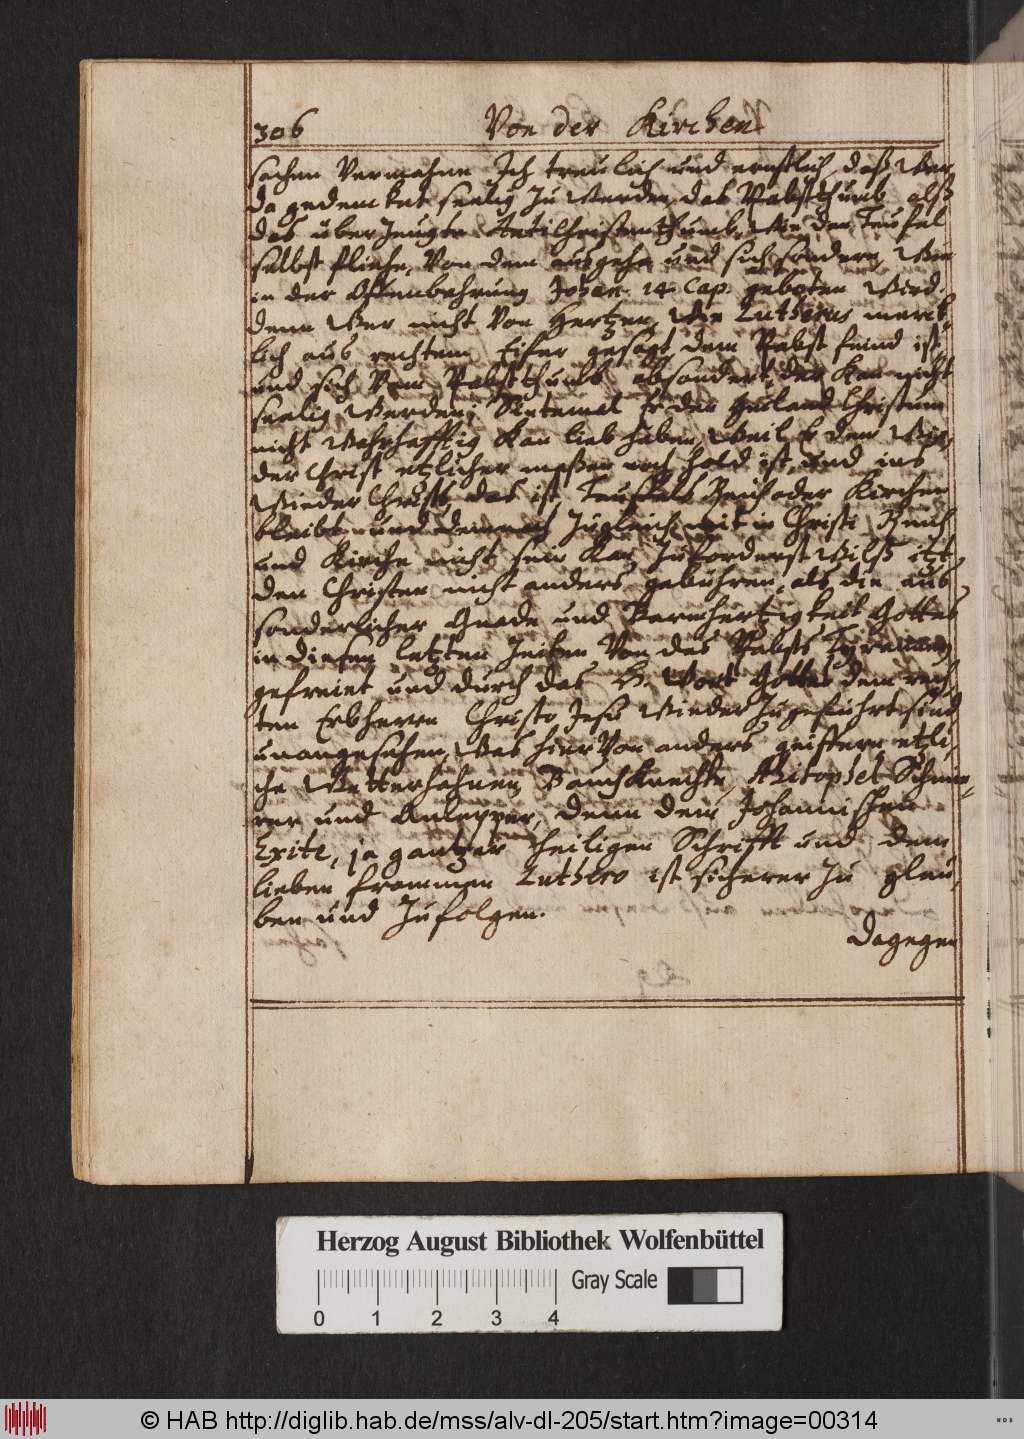 306 Von der Kirchen
sachen Vermahne Ich treulich und ernstlich, daß Wer
da gedencket seelig zu Werden, das Pabstthumb alß
das überzeugte AntiChristenthumb, Wie den Teufel
selbst fliehe, Von dem ausgehe und sich sondere, Wie
in der Offenbahrung Johan. 14. Cap. geboten Wird.
denn Wer nicht Von Hertzen, Wie Lutherus merck-
lich aus rechtem Eifer gesagt, dem Pabst feind ist,
und sich Vom Pabstthumb absondert, der kan nicht
seelig Werden, Sintemal Er den Heiland Christum
nicht Wahrhafftig kan lieb haben, Weil Er dem Wie-
der Christ etlicher maßen noch hold ist, und ins
WiederChrists, das ist Teuffels Reich oder Kirchen
bleibt, und demnach zugleich mit in Christi Reich
und Kirche nicht sein kan. Zuforderst Wilß itzt
den Christen nicht anders gebühren, als die aus
sonderlicher Gnade und Barmhertzigkeit Gottes
in diesen letzten Zeiten Von des Pabsts Tyranney
gefreiet, und durch das H. Wort Gottes dem rech-
ten Erbherrn Christo Jesu Wieder zugeführt sind
unangesehen, Was hierVon anders geistern etli-
che Wetterhahnen, Bauchknechte, Ahitophel Schmie-
rer und, denn dem Johannischen
Exite, ja gantzer heiligen Schrifft und dem
lieben frommen Luthero ist sicherer zu glau-
ben und zu folgen.
Dagegen
Herzog August Bibliothek Wolfenbüttel
Gray Scale
0 1 2 3 4
© HAB http://diglib.hab.de/mss/alv-dl-205/start.htm?image=00314